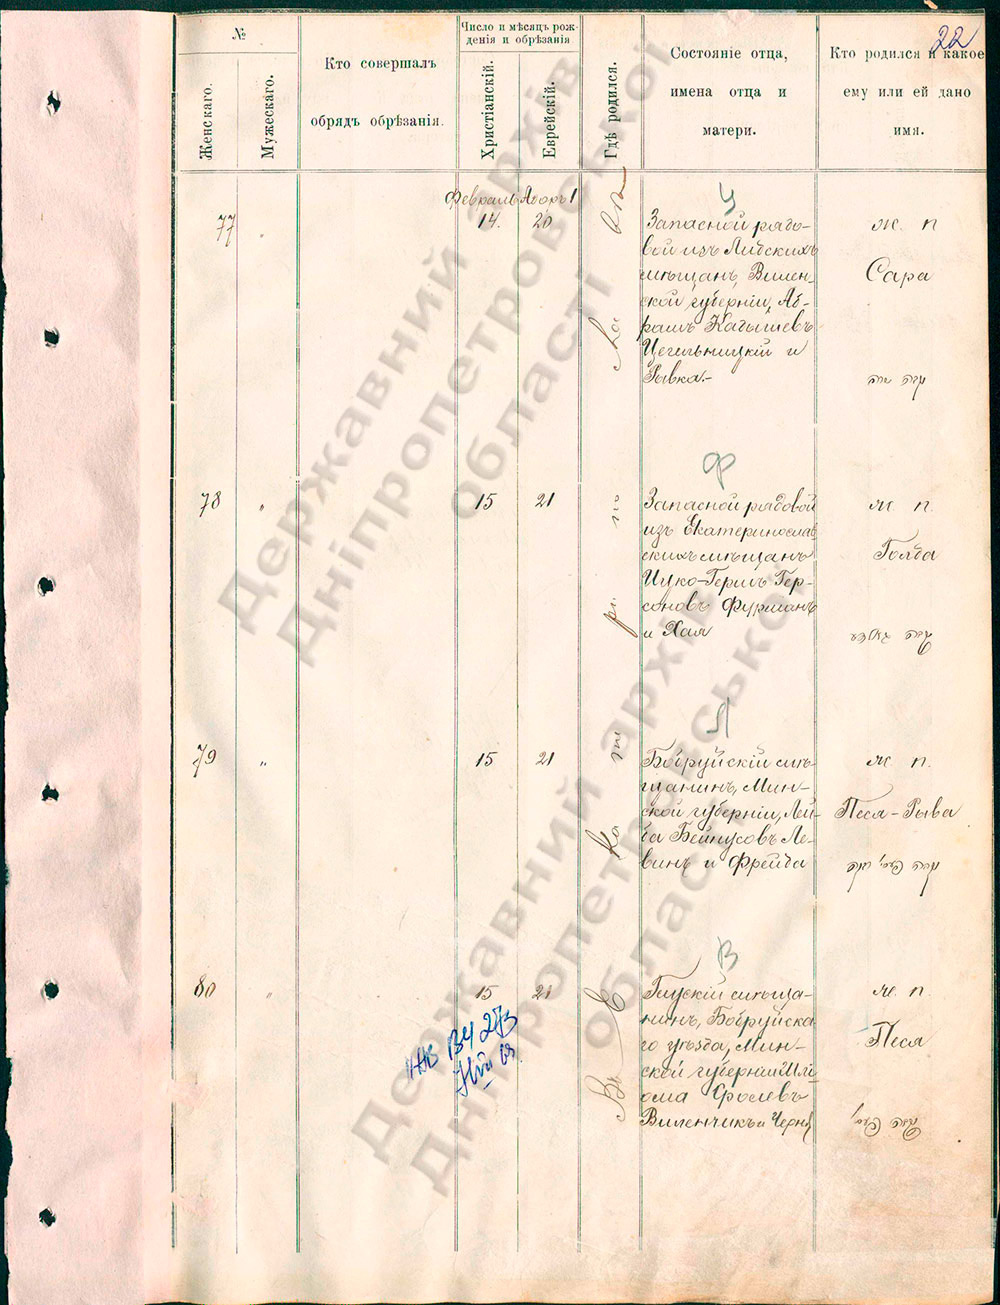 22
№
Женскаго.
Мужескаго.
Кто совершалъ
обрядъ обрѣзанія.
Число и мѣсяцъ рож-
денія и обрѣзанія
Христіанскій.
Еврейскій.
Гдѣ родился.
Состояніе отца,
имена отца и
матери.
Кто родился и какое
ему или ей дано
имя.
Февраль Адоръ 1
77 „ 14. 20
Ц
Запасной рядо-
вой изъ Лидскихъ
мѣщан, Вилен-
ской губерніи, Аб-
рамъ
Цегельницкій и
Рывка.-
ж. п
Сара
78 „ 15 21
Ф
Запасной рядовой
изъ Екатеринослав
скихъ мѣщанъ
Ицко-Гершъ Гер-
шоновъ Фурманъ
и Хая
ж. п.
Голда
79 „ 15 21
Л
Бобруйскій мѣ-
щанинъ, Мин-
ской губерніи, Лей-
ба Бейнусовъ Ле-
винъ и Фрейда
ж. п.
Песя-Рыва
80 „ 15 21
В
Глускій мѣща-
нинъ, Бобруйска
го уѣзда, Мин-
ской губерніи Шл
ома Сролевъ
Виленчикъ и Черня
ж. п.
Песя
Въ Екатери
Державний архів
Дніпропетровської
області
Державний архів
Дніпропетровської
області